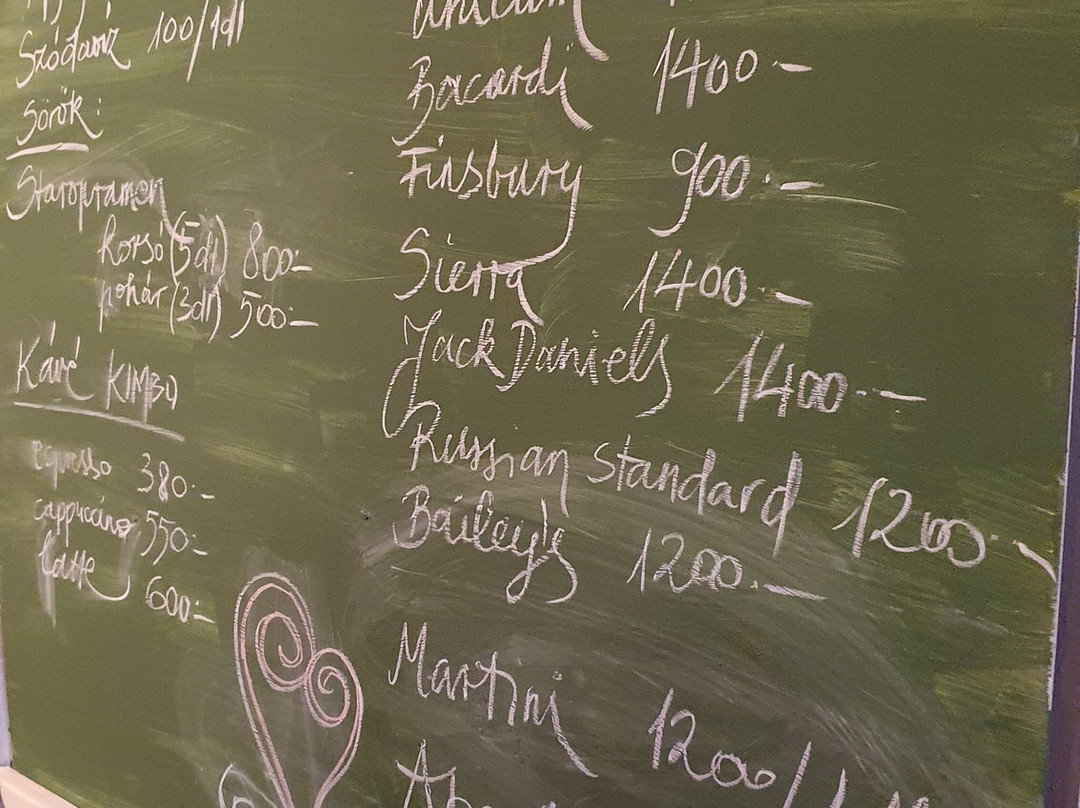 Szódavíz 100/1dl
Sörök:
Staropramen
korsó (5dl) 800:-
pohár (3dl) 500:-
Kávé KIMBO
espresso 380.-
cappuccino 550:-
latte 600:-
Unicum
Bacardi 1400.-
Finsbury 900.-
Sierra 1400.-
Jack Daniels 1400.-
Russian standard 1200.-
Bailey's 1200.-
Martini 1200/